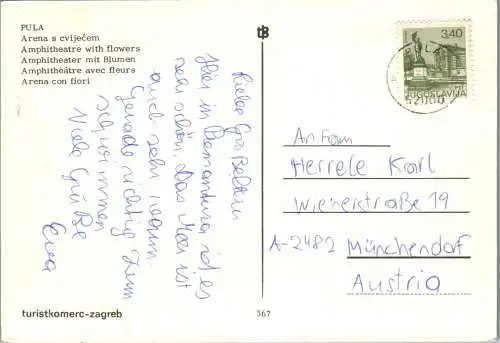 PULA
Arena s cviječem
Amphitheatre with flowers
Amphitheater mit Blumen
Amphithéâtre avec fleurs
Arena con fiori
tB
3,40
JUGOSLAVIJA
PULA
52000
Hier in Premantura ist es
sehr schön. Das Meer ist
auch sehr
Gerade richtig zum
schwimmen
Viele Grüße
An Fam.
Herrele Karl
Wienerstraße 19
A-2482 Münchendorf
Austria
turistkomerc-zagreb
567